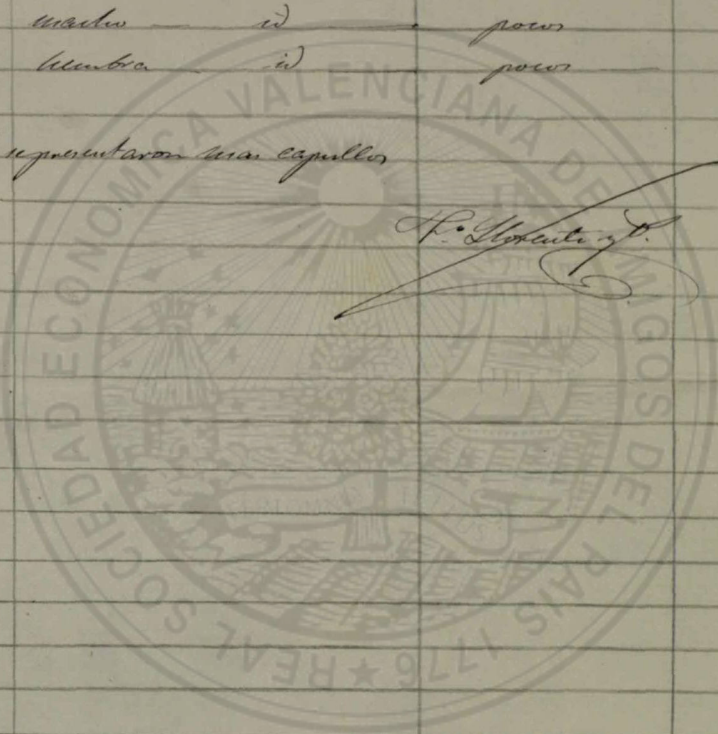 macho — id — pocos
hembra — id — pocos
presentaron mas capullos
Llorente y
REAL SOCIEDAD ECONOMICA VALENCIANA DE AMIGOS DEL PAIS 1776 ★